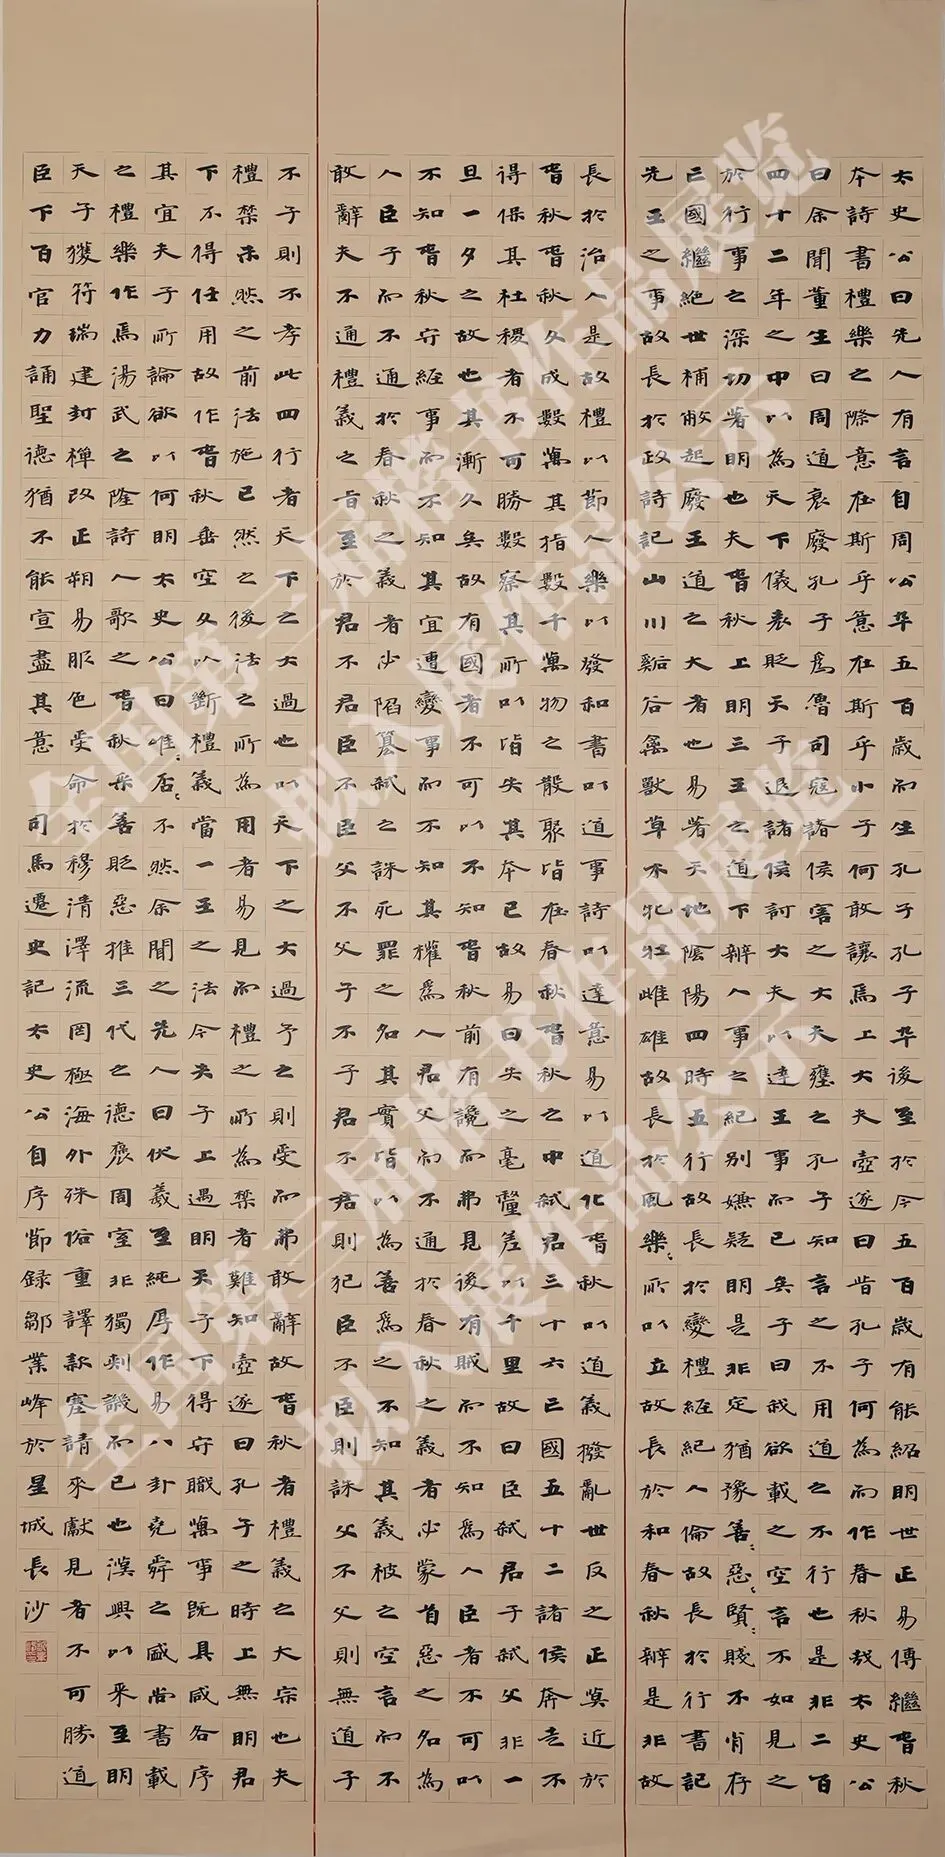 太史公曰先人有言自周公卒五百歲而生孔子孔子卒後至於今五百歲有能紹明世正易傳繼春秋
本詩書禮樂之際意在斯乎意在斯乎小子何敢讓焉上大夫壺遂曰昔孔子何為而作春秋哉太史公
曰余聞董生曰周道衰廢孔子為魯司寇諸侯害之大夫壅之孔子知言之不用道之不行也是非二百
四十二年之中以為天下儀表貶天子退諸侯討大夫以達王事而已矣子曰我欲載之空言不如見之
於行事之深切著明也夫春秋上明三王之道下辨人事之紀別嫌疑明是非定猶豫善〻惡〻賢〻賤不肖存
亡國繼絕世補敝起廢王道之大者也易著天地陰陽四時五行故長於變禮經紀人倫故長於行書記
先王之事故長於政詩記山川谿谷禽獸草木牝牡雌雄故長於風樂〻所以立故長於和春秋辨是非故
長於治人是故禮以節人樂以發和書以道事詩以達意易以道化春秋以道義撥亂世反之正莫近於
春秋春秋文成數萬其指數千萬物之散聚皆在春秋春秋之中弒君三十六亡國五十二諸侯奔走不
得保其社稷者不可勝數察其所以皆失其本已故易曰失之毫釐差以千里故曰臣弒君子弒父非一
旦一夕之故也其漸久矣故有國者不可以不知春秋前有讒而弗見後有賊而不知為人臣者不可以
不知春秋守經事而不知其宜遭變事而不知其權為人君父而不通於春秋之義者必蒙首惡之名為
人臣子而不通於春秋之義者必陷篡弒之誅死罪之名其實皆以為善為之不知其義被之空言而不
敢辭夫不通禮義之旨至於君不君臣不臣父不父子不子君不君則犯臣不臣則誅父不父則無道子
不子則不孝此四行者天下之大過也以天下之大過予之則受而弗敢辭故春秋者禮義之大宗也夫
禮禁未然之前法施已然之後法之所為用者易見而禮之所為禁者難知壺遂曰孔子之時上無明君
下不得任用故作春秋垂空文以斷禮義當一王之法今夫子上遇明天子下得守職萬事既具咸各序
其宜夫子所論欲以何明太史公曰唯〻否〻不然余聞之先人曰伏羲至純厚作易八卦堯舜之盛尚書載
之禮樂作焉湯武之隆詩人歌之春秋采善貶惡推三代之德襃周室非獨刺譏而已也漢興以來至明
天子獲符瑞建封禪改正朔易服色受命於穆清澤流罔極海外殊俗重譯款塞請來獻見者不可勝道
臣下百官力誦聖德猶不能宣盡其意 司馬遷史記太史公自序節録鄒業峰於星城長沙
全国第三届楷书作品展览
拟入展作品公示
全国第三届楷书作品展览
拟入展作品公示